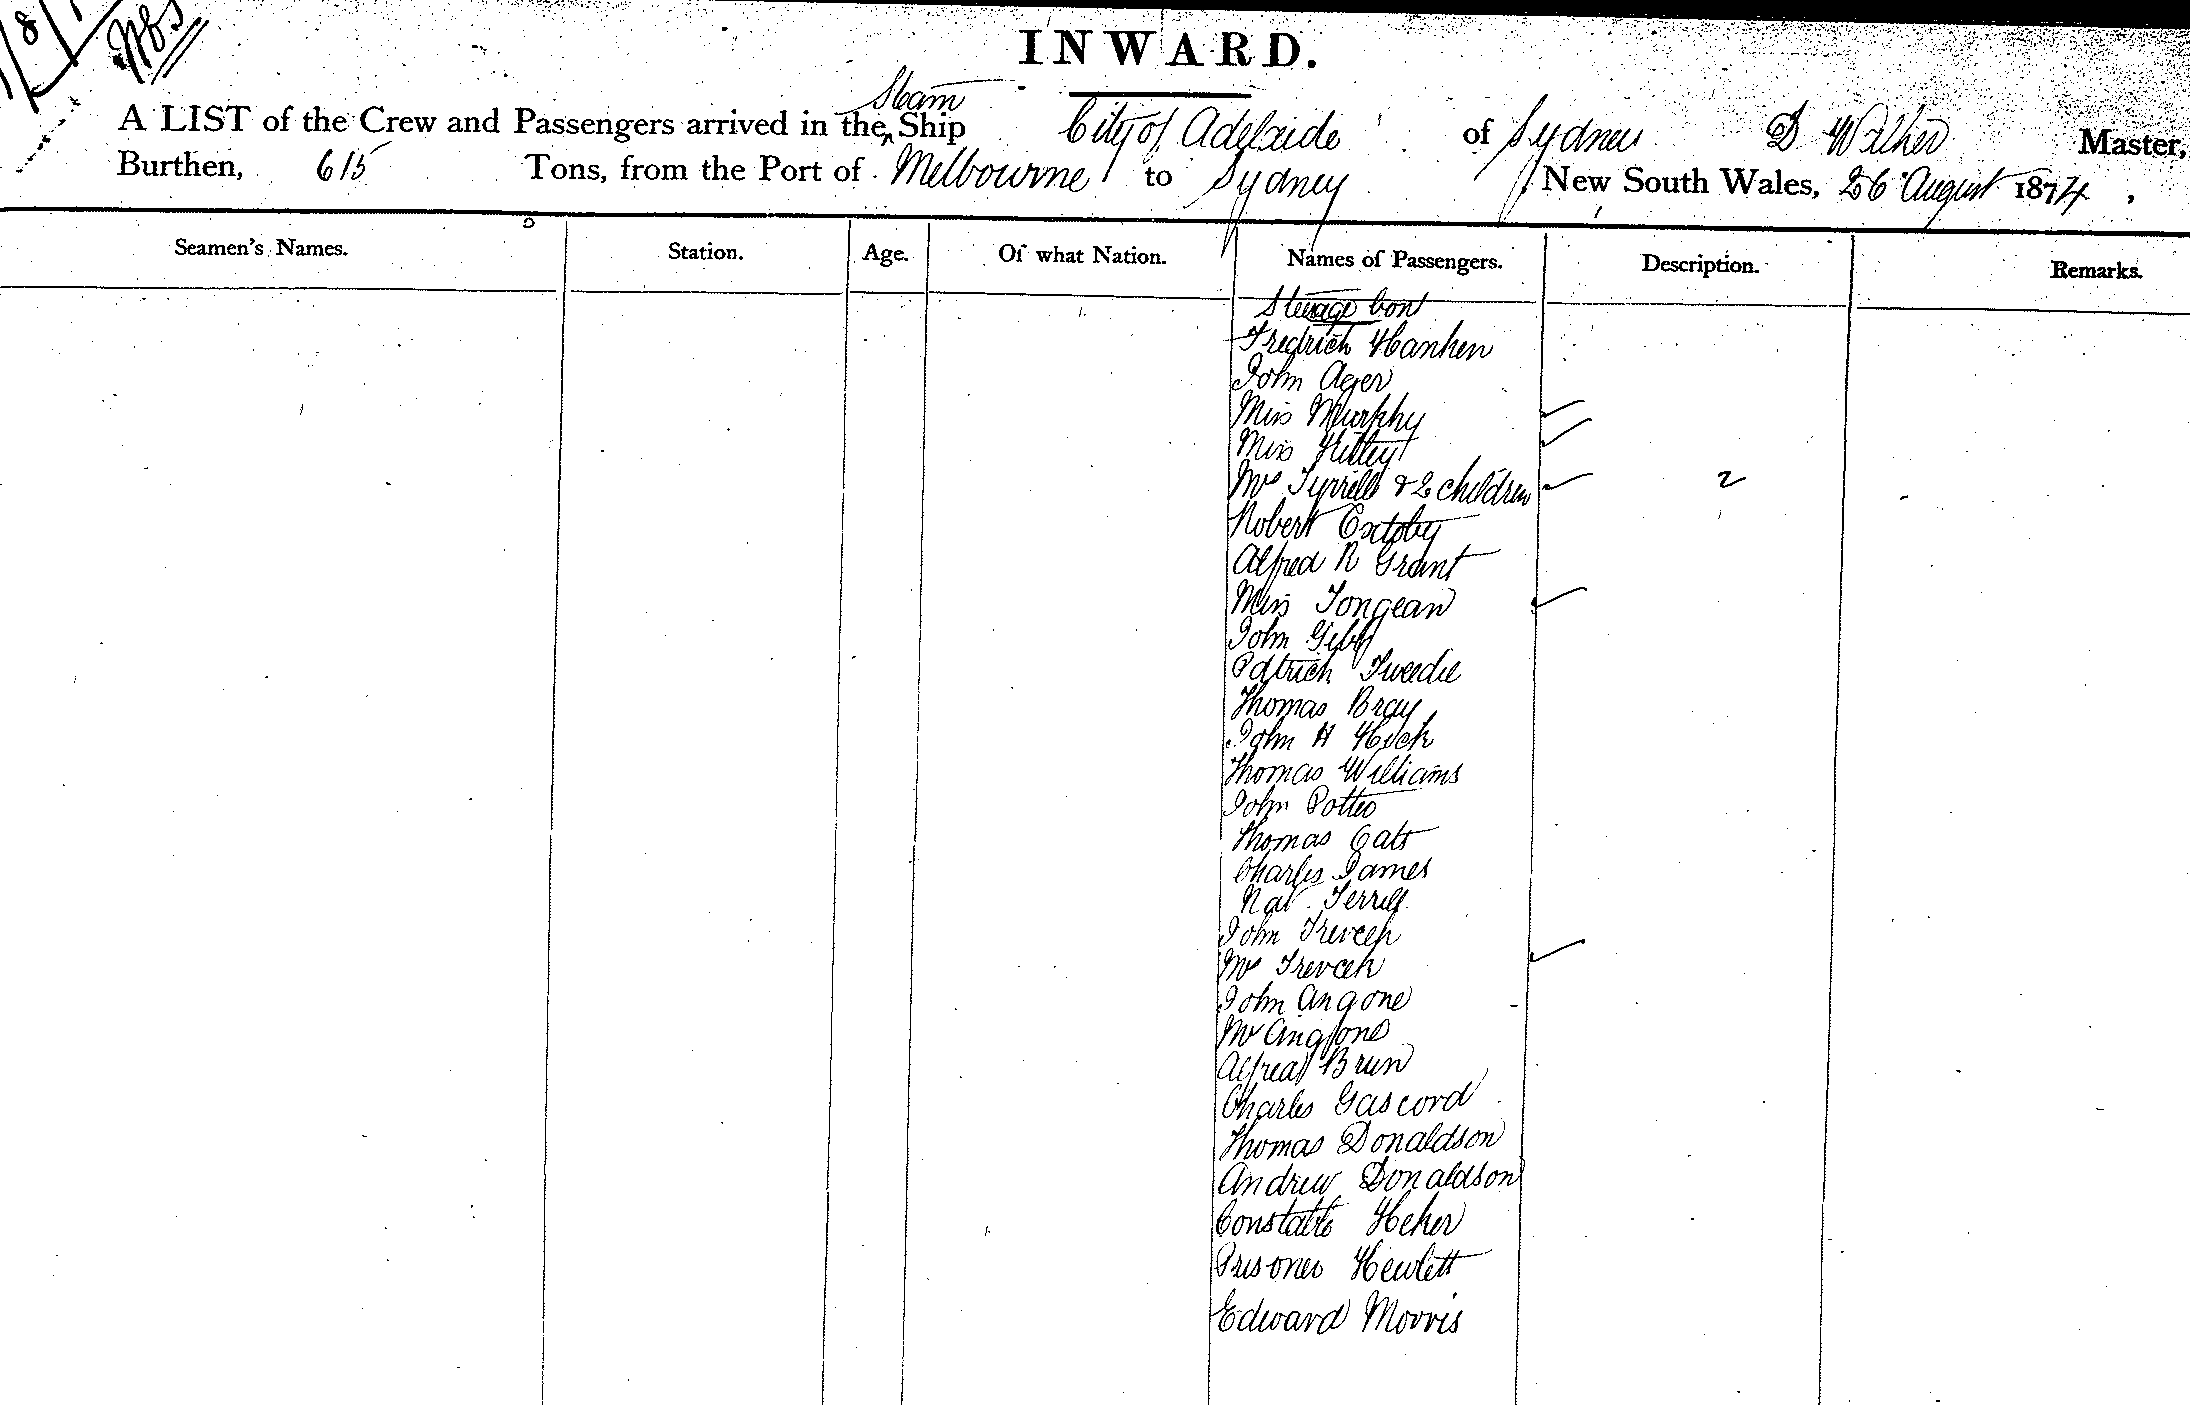 INWARD.
A LIST of the Crew and Passengers arrived in the Steam Ship City of Adelaide of Sydney D Walker Master,
Burthen, 615 Tons, from the Port of Melbourne to Sydney, New South Wales, 26 August 1874.
Seamen's Names. Station. Age. Of what Nation. Names of Passengers. Description. Remarks.
Steerage cont
Fredrich Hanken
John Ager
Miss Murphy
Miss
Mrs Tyrrell & 2 children 2
Robert Oxtoby
Alfred R Grant
Miss Tongean
John Gibb
Patrick Tweedie
Thomas Bray
John H Hick
Thomas Williams
John Potter
Thomas Cats
Charles James
Nat Terrell
John
Mrs
John Angone
Mr Angone
Alfred Brun
Charles Gascord
Thomas Donaldson
Andrew Donaldson
Constable Heher
Prisoner Hewlett
Edward Morris